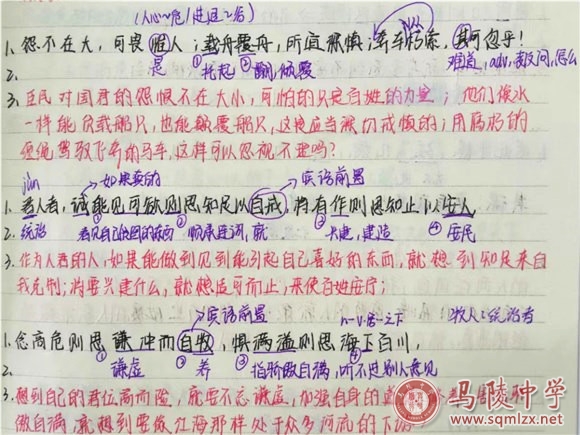 1.怨不在大,可畏惟人;载舟覆舟,所宜深慎;奔车朽索,其可忽乎!
2. 是 ①托起 ②翻,倾覆 难道,adv,表反问,怎么
3.臣民对国君的怨恨不在大小,可怕的只是百姓的力量;他们像水
一样能负载船只,也能颠覆船只,这是应当深切戒慎的;用腐朽的
绳绳驾驭飞奔的马车,这样可以忽视不理吗?
→如果真的 →宾语前置
1.君人者,诚能见可欲则思知足以自戒,将有作则思知止以安人
2.统治 看见自己 的东西 顺承连词,就 ③大建,建造 ④百姓
3.作为人君的人,如果能做到见到能引起自己喜好的东西,就想到知足来自
我克制;将要兴建什么,就想适可而止,来使百姓安宁;
→宾语前置 牧人:统治者
1.念高危则思谦冲而自牧,惧满溢则思江海下百川,
①谦虚 ②养 ③指骄傲自满,听不进别人意见
3.想到自己的君位高而险,就要不忘谦虚,加强自身的道
做自满,就想到要像江海那样处于众多河流的下
马陵中学
www.sqmlzx.net